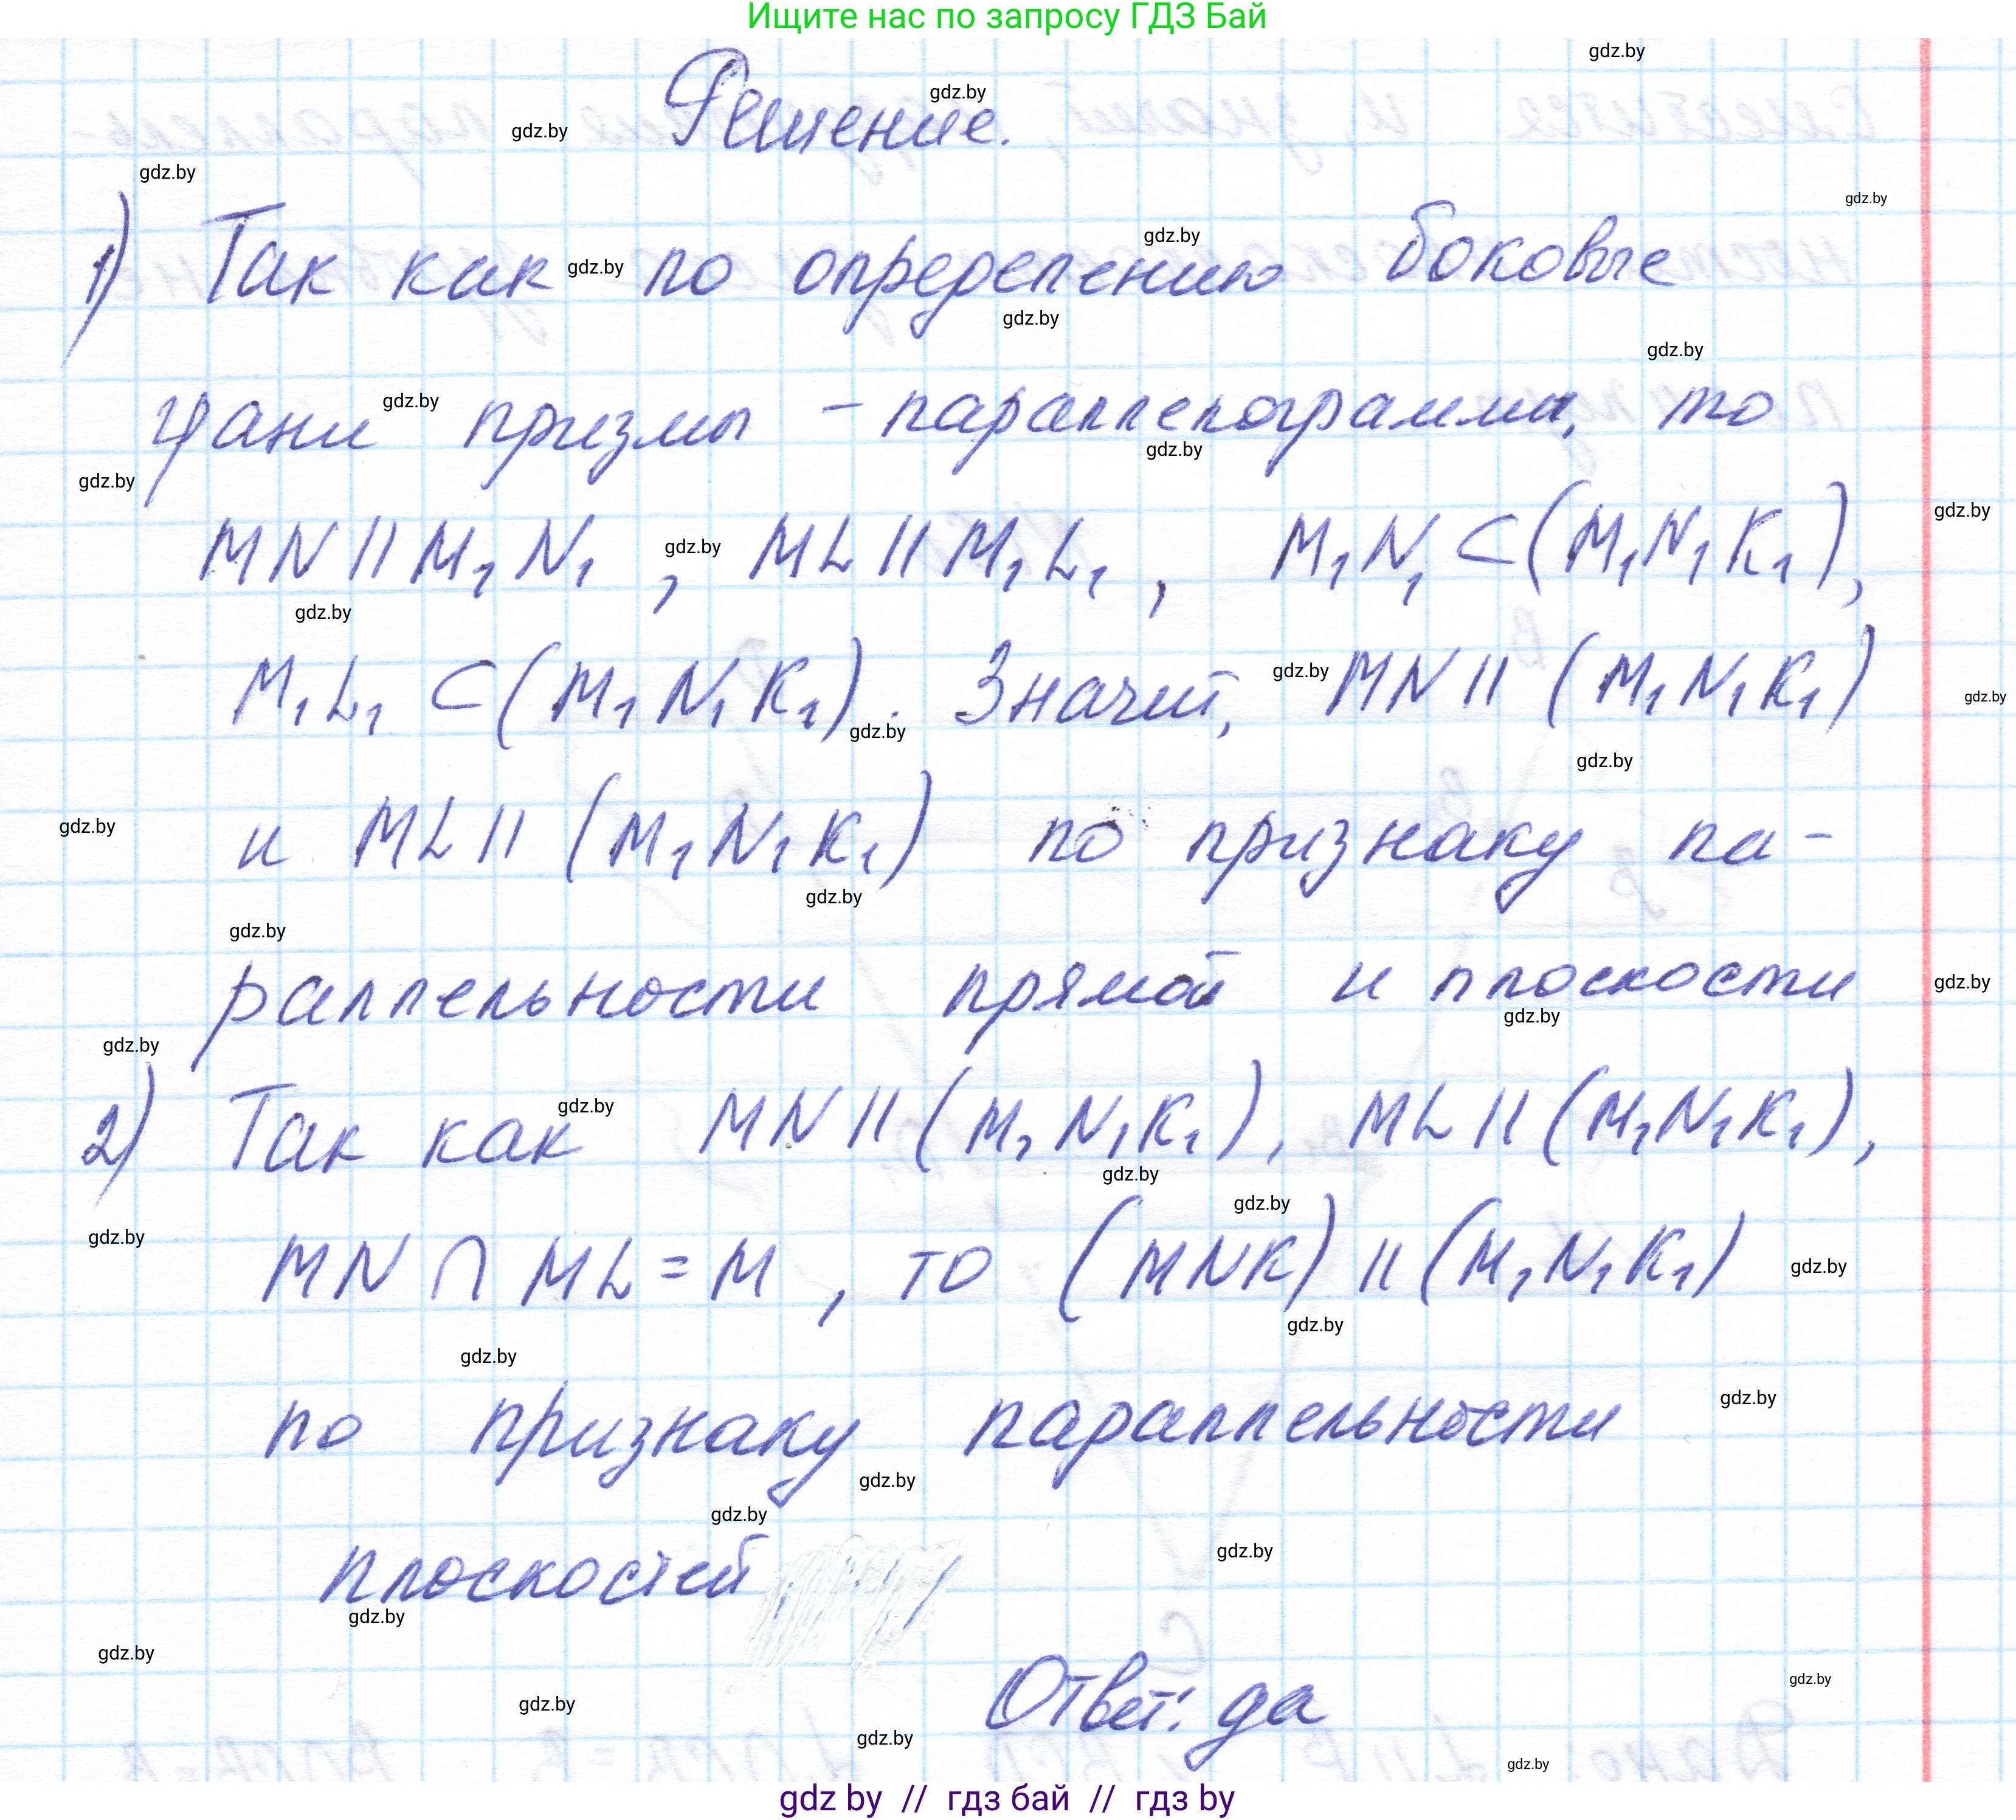 Ищите нас по запросу ГДЗ Бай
Решение.
1) Так как по определению боковые
грани призмы - параллелограммы, то
MN || M₁N₁, ML || M₁L₁, M₁N₁ ⊂ (M₁N₁K₁),
M₁L₁ ⊂ (M₁N₁K₁). Значит, MN || (M₁N₁K₁)
и ML || (M₁N₁K₁) по признаку па-
раллельности прямой и плоскости
2) Так как MN || (M₁N₁K₁), ML || (M₁N₁K₁),
MN ∩ ML = M, то (MNK) || (M₁N₁K₁)
по признаку параллельности
плоскостей
Ответ: да
gdz by // гдз бай // гдз by